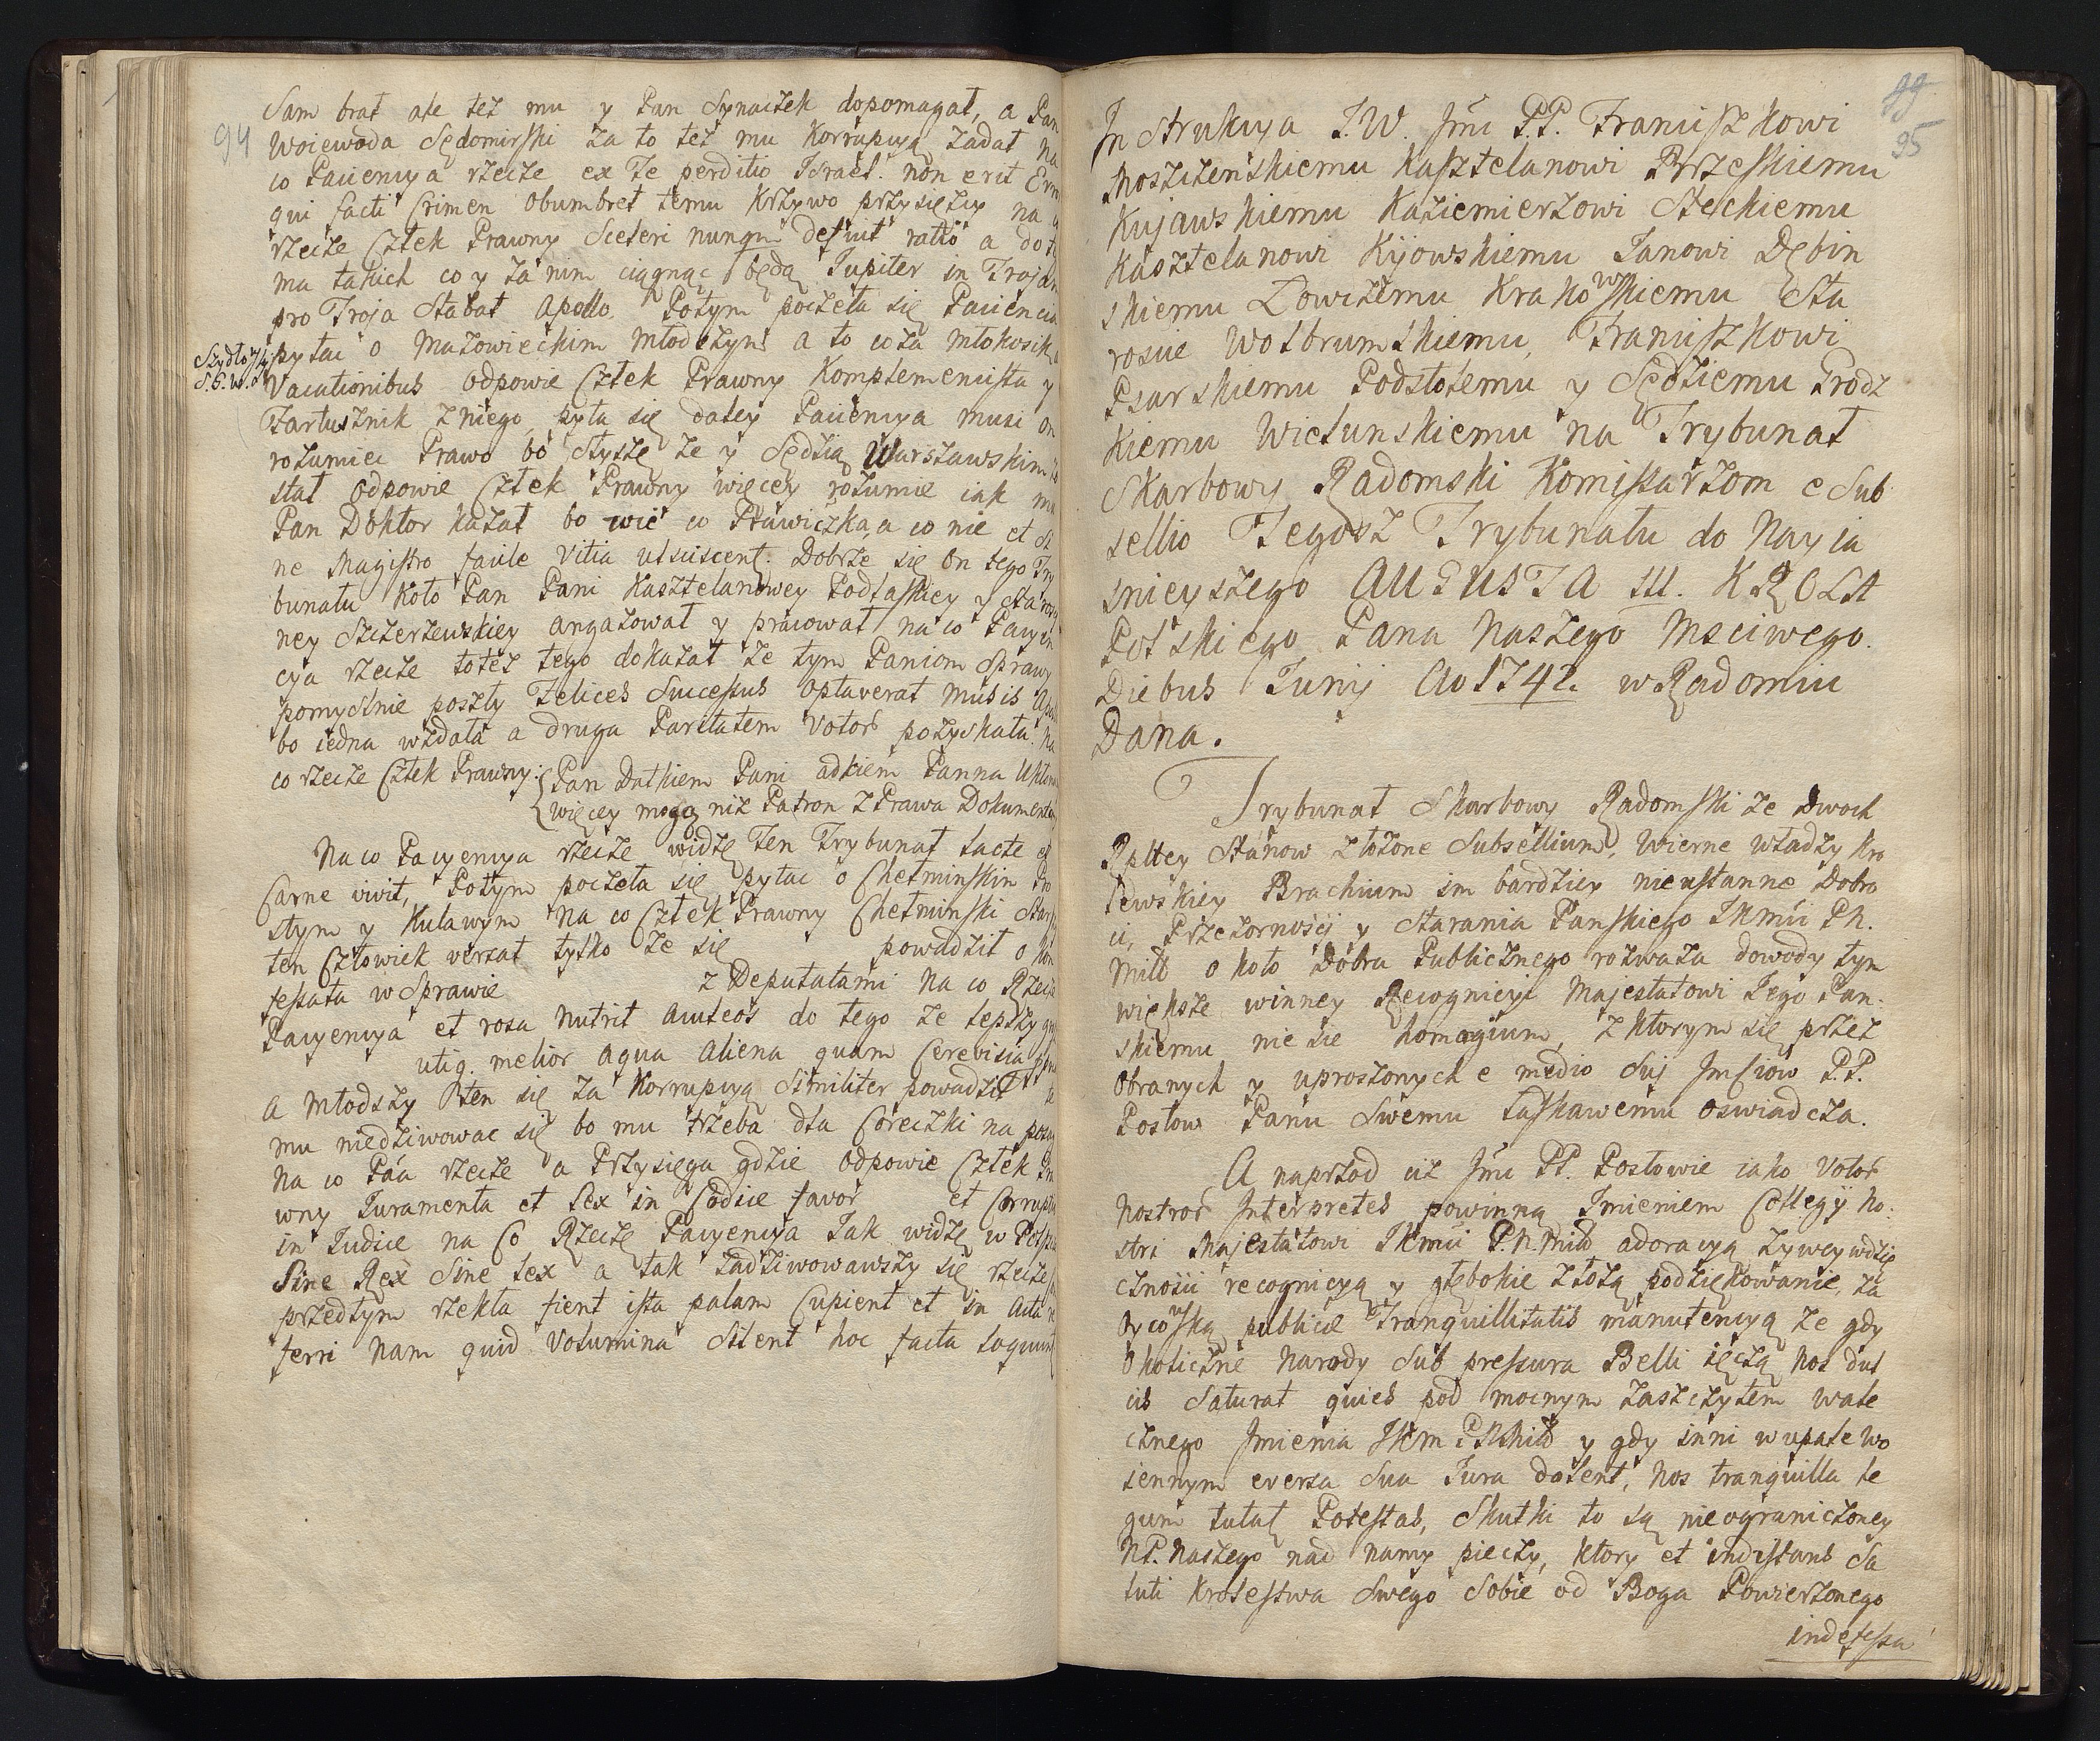 94
Sam brał ale też mu y Pan Synaczek dopomagał, a Pan
Woiewoda Sędomirski za to też mu Korrupcyą zadał na
co Paciencya rzecze ex Te perditio Israel. non erit
qui facti Crimen obumbret temu Krzywo przysięzcy na
rzecze Człek Prawny Sceleri nunqm defuit ratio a do
ma takich co y za nim ciągnąc będą Jupiter in Trojam
pro Troja Stabat Apollo. Potym poczęła się Paciencia
Szydłowski
S. G. W.
pytac o Mazowieckim młodszym a to co za młokosik
Vacationibus odpowie Człek Prawny Komplemencista y
Fartusznik z niego, pyta się daley Paciencya musi on
rozumiec Prawo bo słyszę że y Sędzią Warszawskim
stał odpowie Człek Prawny więcey rozumie iak mu
Pan Doktor kazał bo wie co Pławiczka, a co nie et Si
ne Magistro facile Vitia ulsciscent. Dobrze się on tego Try
bunału koło Pan Pani Kasztelanowey Podlaskiey y Staros
ney Szczerzewskiey angażował y pracował na co Pacyen
cya rzecze toteż tego dokazał że tym Paniom Sprawy
pomyslnie poszły Felices Successus optaverat musis
bo iedna wzdała a druga Paritatem Votor pozyskała. Na
co rzecze Człek Prawny: Pan Datkiem Pani adkiem Panna Ukłonem
więcey mogą niż Patron z Prawa Dokumentem
Na co Pacyencya rzecze widzę Ten Trybunał Lacte et
Carne vivit, Potym poczęła się pytac o Chełminskim Pro
stym y Kulawym na co Człek Prawny Chełminski Starszy
ten Człowiek versat tylko że się powadził o Kon
fessata w Sprawie z Deputatami na co Rzecze
Pacyencya et rosa nutrit aculeos do tego że lepszy
utiq. melior aqua aliena quam Cerevisia
A Młodszy ten się za Korrupcyą Similiter powadził
mu niedziwowac się bo mu trzeba dla Coreczki na posag
na co Pāa rzecze a Przysięga gdzie odpowie Człek Pra
wny Juramenta et Lex in Codice favor et Corruptio
in Judice na Co Rzecze Pacyencya Jak widzę w Polszcze
Sine Rex Sine Lex a tak zadziwowawszy się rzecze
przedtym rzekła fient ista palam Cupient et in acta re
ferri nam quid Volumina Silent hoc facta loquunt
99
95
Instrukcya J.W. Jmci P.P. Franciszkowi
Moszczeńskiemu Kasztelanowi Brzeskiemu
Kujawskiemu Kazimierzowi Steckiemu
Kasztelanowi Kijowskiemu Janowi Dębin
skiemu Łowczemu Krakowskiemu Sta
roscie Wolbrumskiemu, Franciszkowi
Psarskiemu Podstolemu y Sędziemu Grodz
kiemu Wielunskiemu na Trybunał
Skarbowy Radomski Komissarzom e Sub
sellio Tegosz Trybunału do Nayia
snieyszego AUGUSTA III. KROLA
Polskiego Pana Naszego Mściwego.
Diebus Junij Ao 1742. w Radomiu
Dana.
Trybunał Skarbowy Radomski ze Dwoch
Rpltey Stanow złożone Subsellium, Wierne władzy Kro
lewskiey Brachium im bardziey nieustanne Dobro
ci, Przezornosci y starania Panskiego JKmci P.N.
Młł około Dobra Publicznego rozważa dowody tym
większe winney Recognicyi Majestatowi Jego Pan
skiemu niesie homagium, z ktorym się przez
Obranych y uproszonych e medio Sui Jmciow P.P.
Posłow Panu Swemu łaskawemu oswiadcza.
A naprzod ciż Jmci PP. Posłowie iako Votor
Nostror Interpretes powinną Imieniem Collegij No
stri Majestatowi JKmci P.N. Młł adoracyą żywey wdzię
cznosci recognicyą y głębokie złożą podziękowanie, za
Oycowską publicæ Tranquillitatis manutencyą że gdy
okoliczne Narody Sub pressura Belli ięczą nos dul
cis Saturat quies pod mocnym zaszczytem wale
cznego Imienia JKm P N Młł y gdy inni w upale wo
iennym eversa Sua Jura dolent, nos tranquilla le
gum tutat Potestas, Skutki to są nieograniczoney
N P. Naszego nad namy pieczy, ktory et indistans Sa
luti Krolestwa Swego Sobie od Boga Powierzonego
indefessa